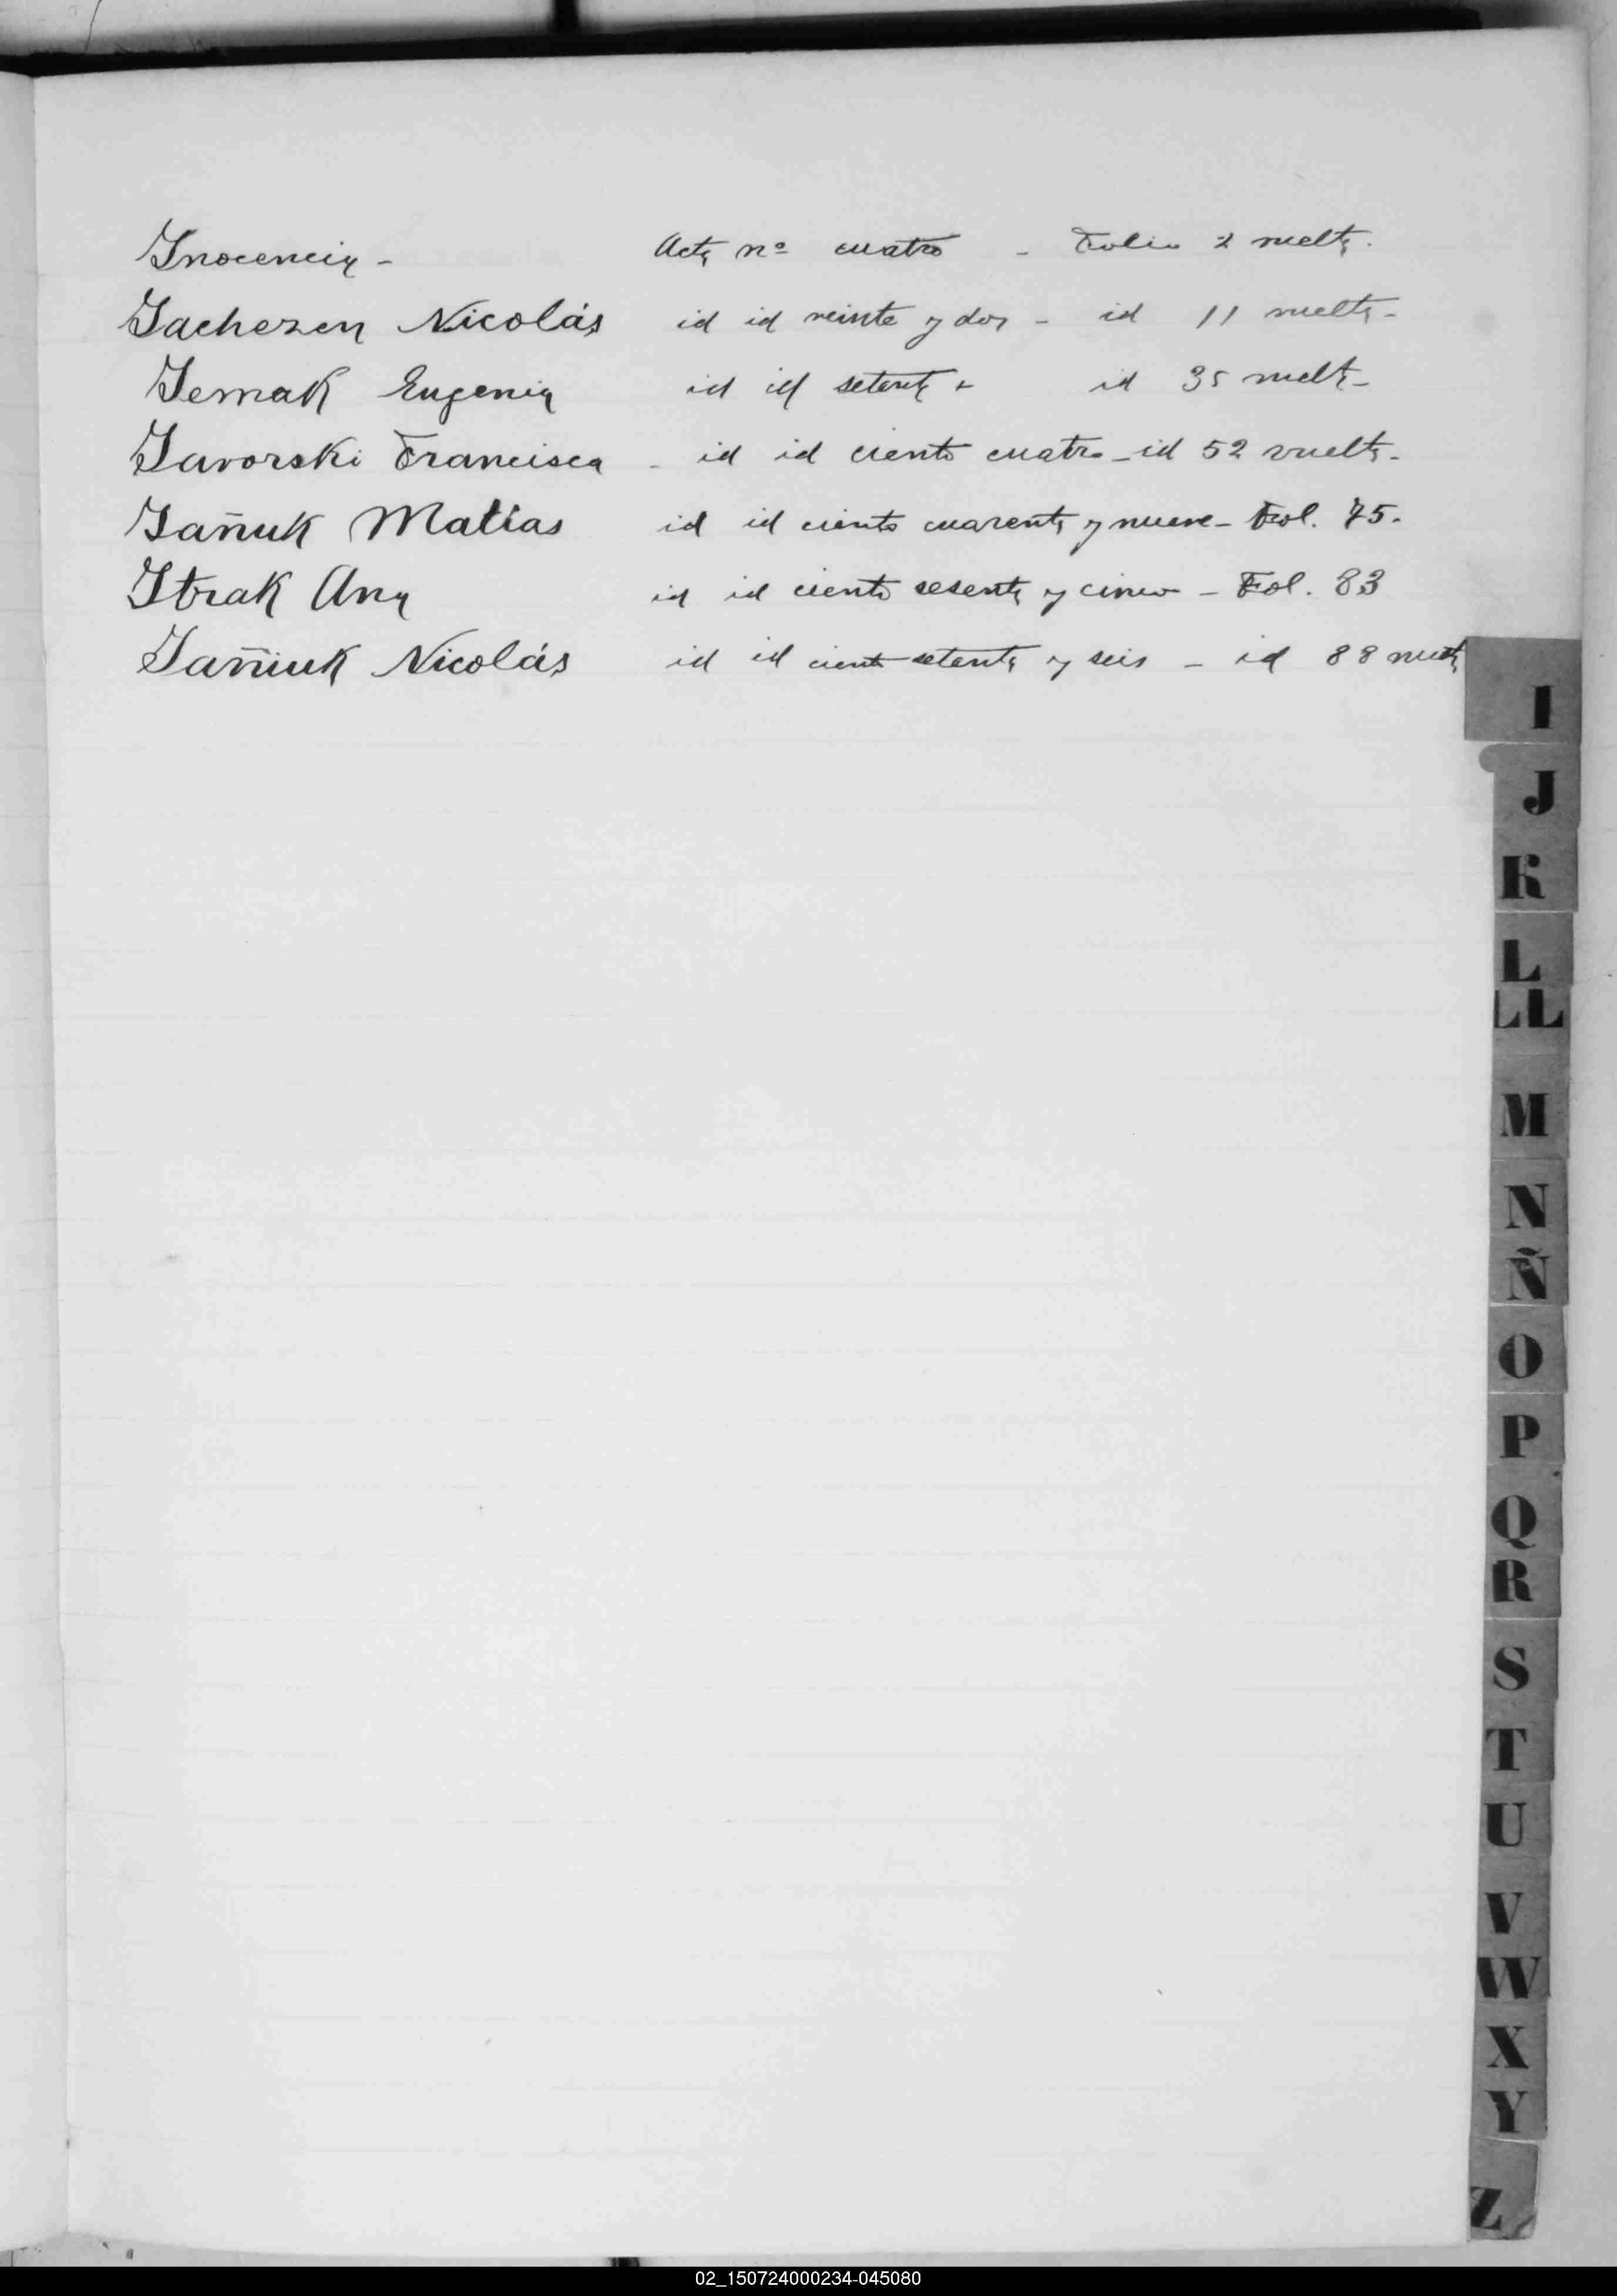 Inocencia - Acta nº cuatro - Folio 2 vuelta.
Iachezen Nicolás id id veinte y dos - id 11 vuelta -
Iernak Eugenia id id setenta - id 35 vuelta -
Iavorski Francisca - id id ciento cuatro - id 52 vuelta -
Iañuk Matías id id ciento cuarenta y nueve - Fol. 75.
Itrak Ana id id ciento sesenta y cinco - Fol. 83
Iañiuk Nicolás id id ciento setenta y seis - id 88 vuelta
I
J
K
L
LL
M
N
Ñ
O
P
Q
R
S
T
U
V
W
X
Y
Z
02_150724000234-045080